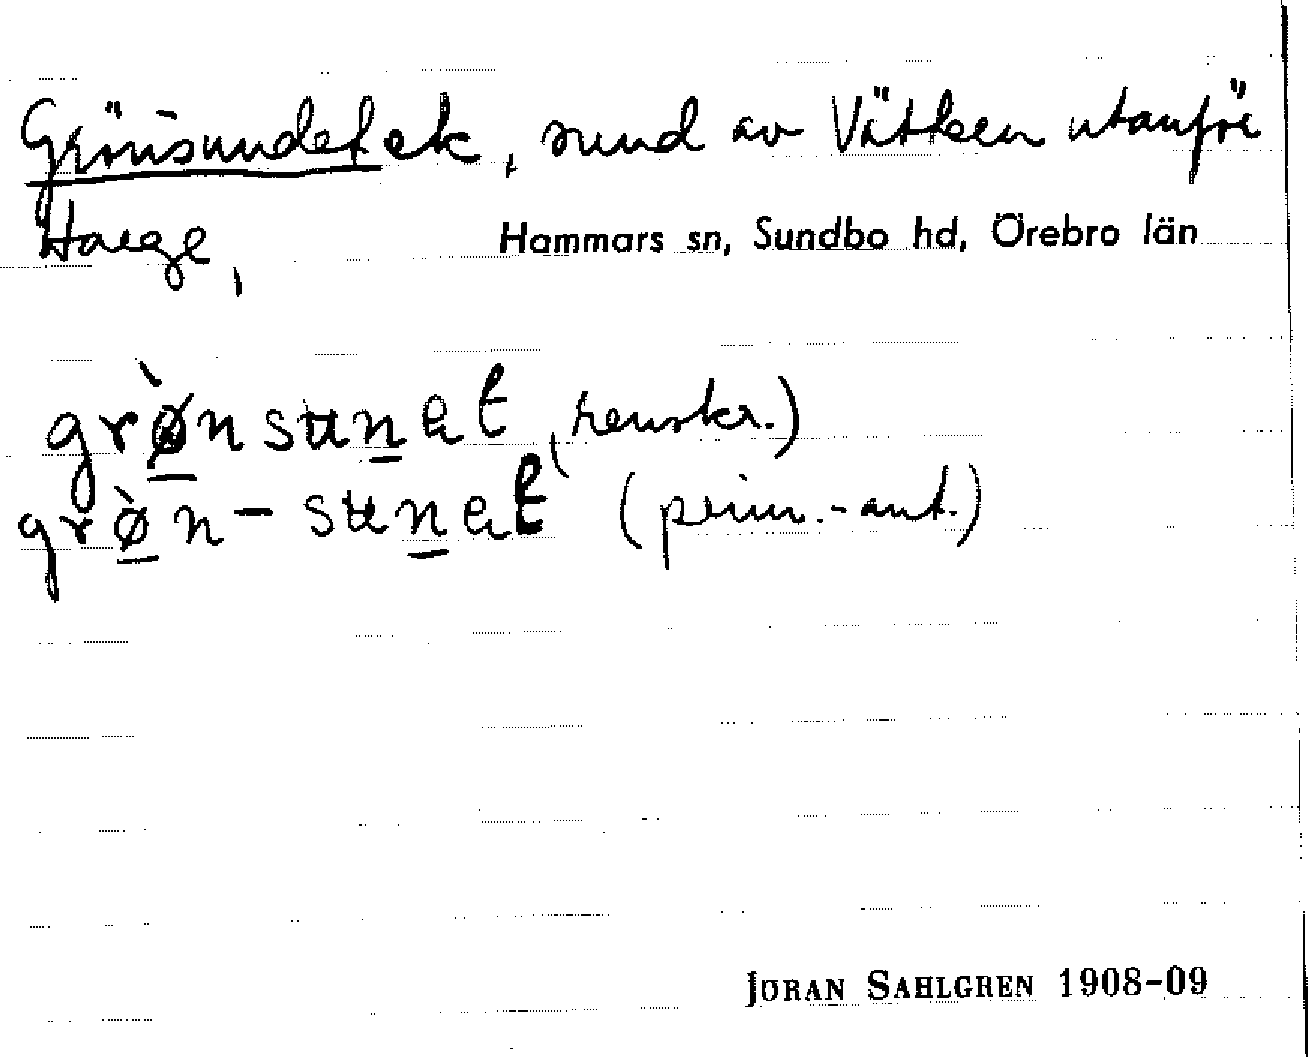 Grönsundet ek, sund av Vättern utanför
Harge, Hammars sn, Sundbo hd, Örebro län
grø̀nsunət (renskr.)
grø̀n-sunət (prim.-ant.)
JÖRAN SAHLGREN 1908-09